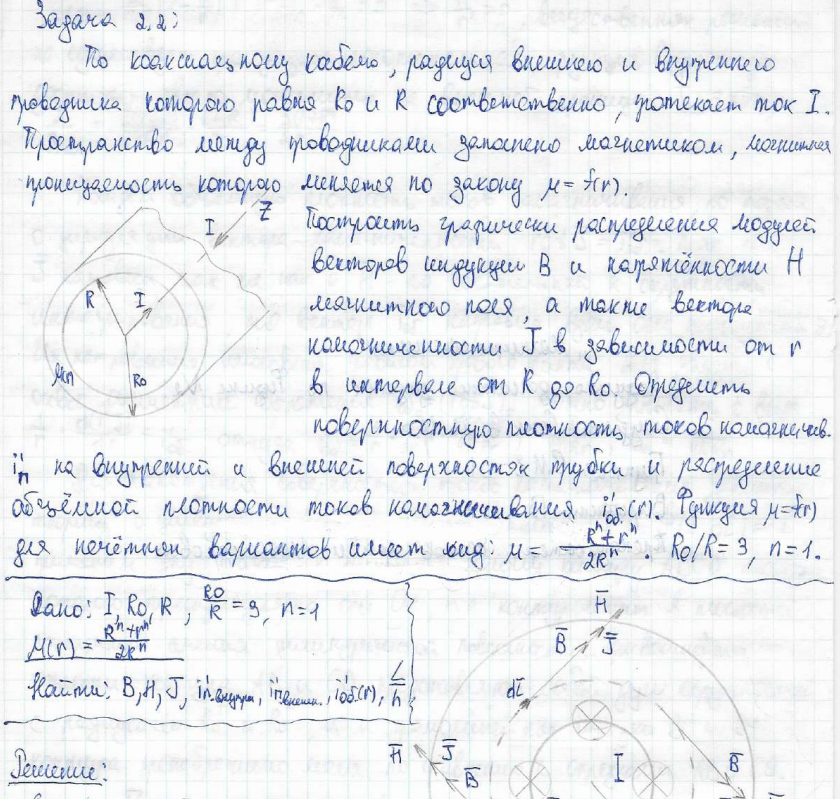 Задача 2.2:
По коаксиальному кабелю, радиуся внешнего и внутреннего
проводника которого равня Ro и R соответственно, протекает ток I.
Пространство между проводниками заполнено магнетиком, магнитная
проницаемость которого меняется по закону μ=f(r).
I Z
Построить графически распределения модулей
векторов индукции B и напряжённости H
R I
магнитного поля, а также вектора
намагниченности J в зависимости от r
μ(r) Ro
в интервале от R до Ro. Определить
поверхностную плотность токов намагничив.
i'п на внутренней и внешней поверхностях трубки и распределение
объёмной плотности токов намагничивания i'об.(r). Функция μ=f(r)
для нечётнях вариантов имеет вид: μ = (Rⁿ+rⁿ)/(2Rⁿ), Ro/R=3, n=1.
Дано: I, Ro, R, Ro/R=3, n=1
μ(r)=(Rⁿ+rⁿ)/(2Rⁿ)
Найти: B, H, J, i'п.внутри, i'п.внешн., i'об.(r), L/h
H
B J
dl
H J
B
I
B
Решение: